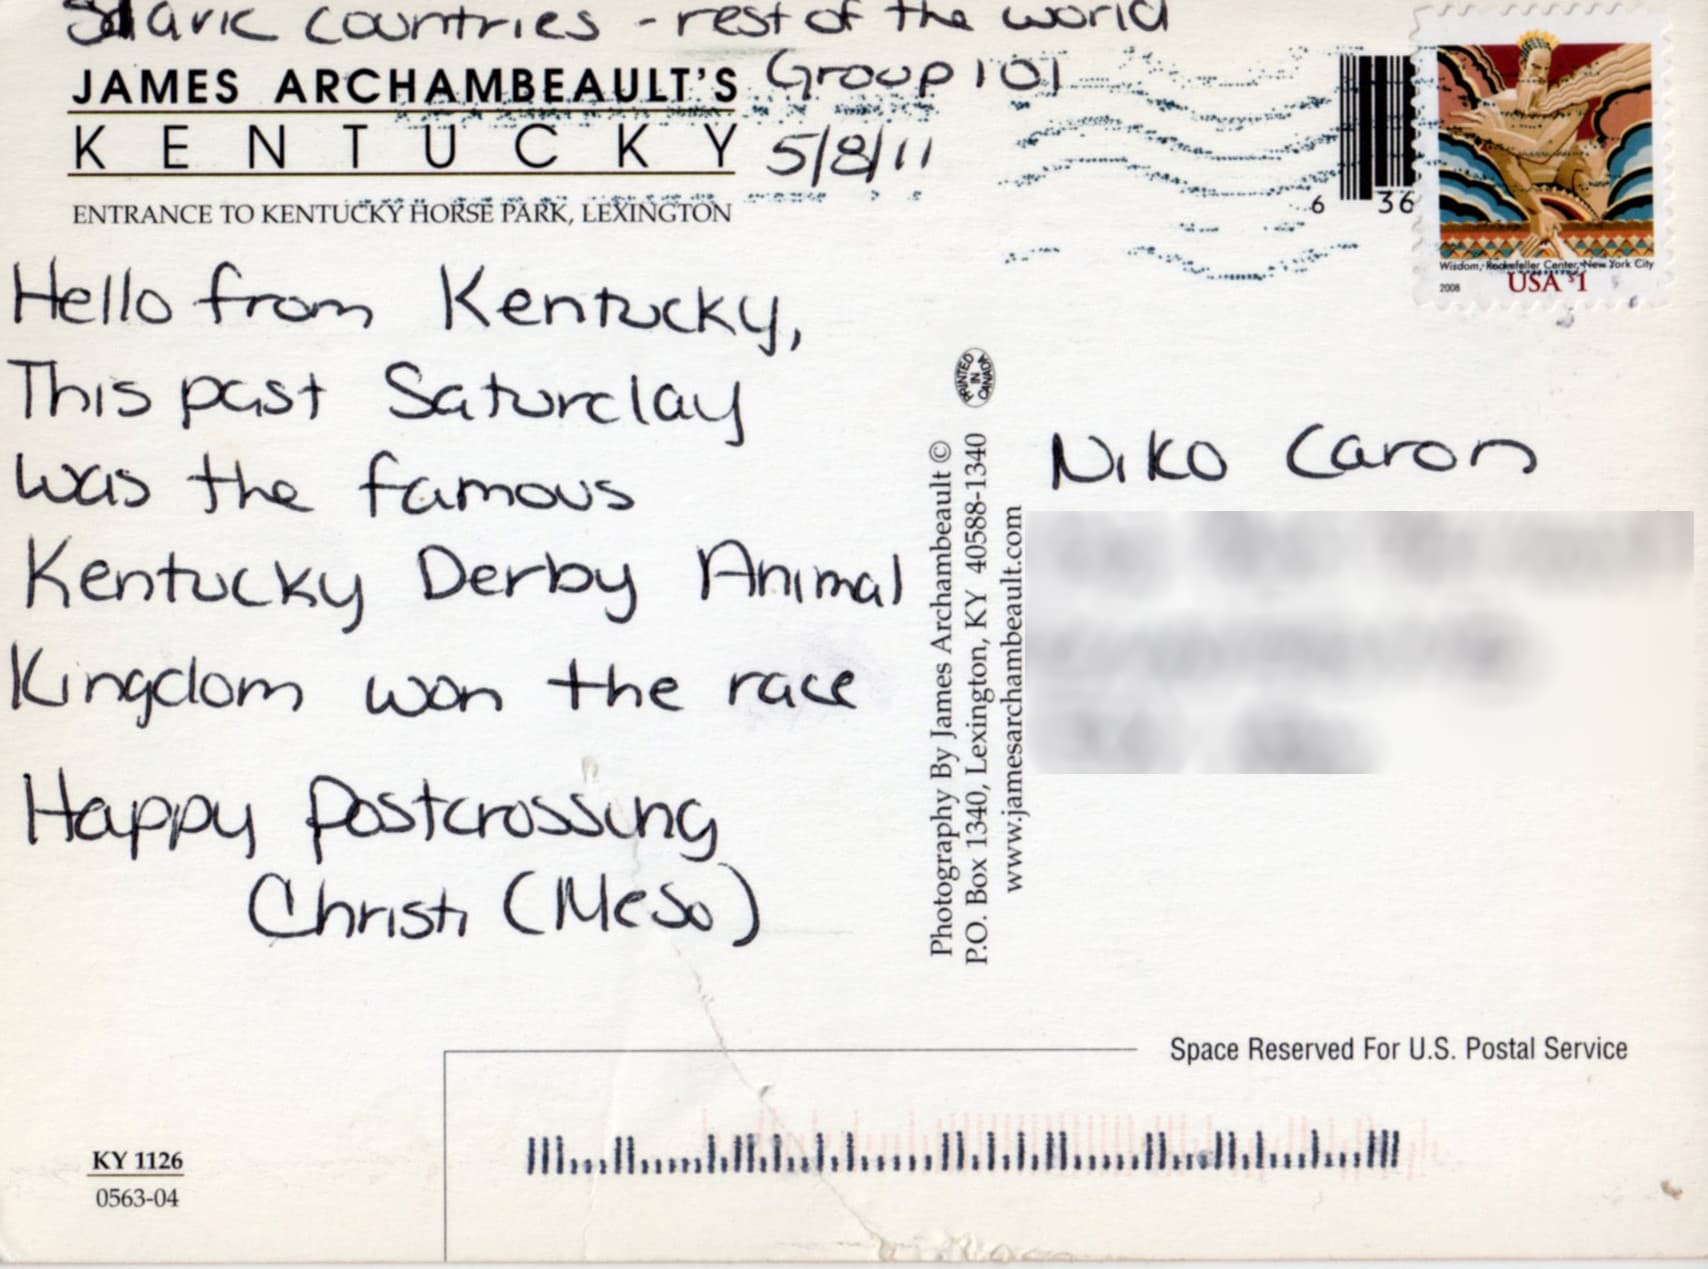 Slavic countries - rest of the world
JAMES ARCHAMBEAULT'S
Group 101
KENTUCKY
5/8/11
ENTRANCE TO KENTUCKY HORSE PARK, LEXINGTON
Hello from Kentucky,
This past Saturday
was the famous
Kentucky Derby Animal
Kingdom won the race
Happy Postcrossing
Christi (Meso)
KY 1126
0563-04
PRINTED IN CANADA
Photography By James Archambeault ©
P.O. Box 1340, Lexington, KY 40588-1340
www.jamesarchambeault.com
6 36
Wisdom, Rockefeller Center, New York City
2008
USA $1
Niko Caron
Space Reserved For U.S. Postal Service